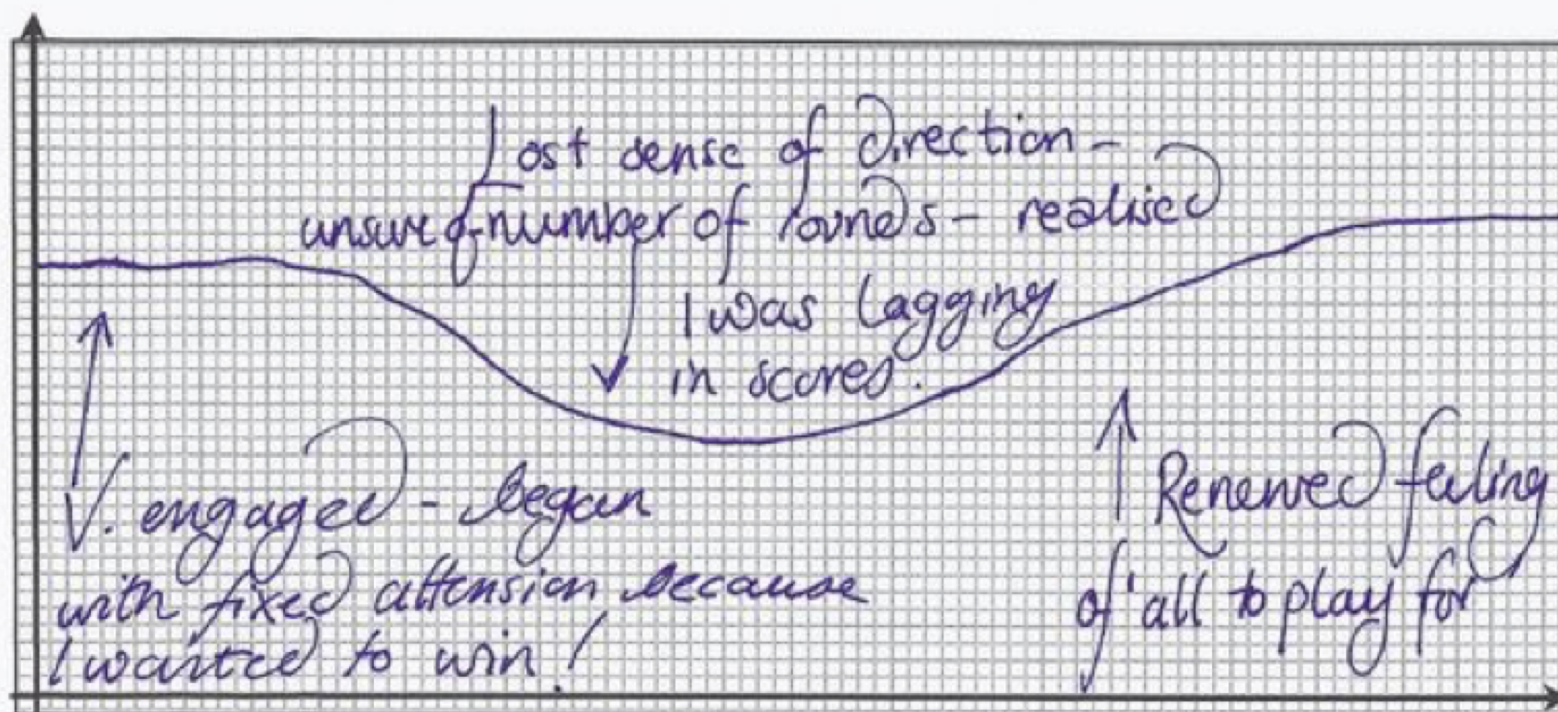 Lost sense of direction -
unsure of number of rounds - realised
I was lagging
in scores.
V. engaged - began
with fixed attension because
I wanted to win!
Renewed feeling
of 'all to play for'